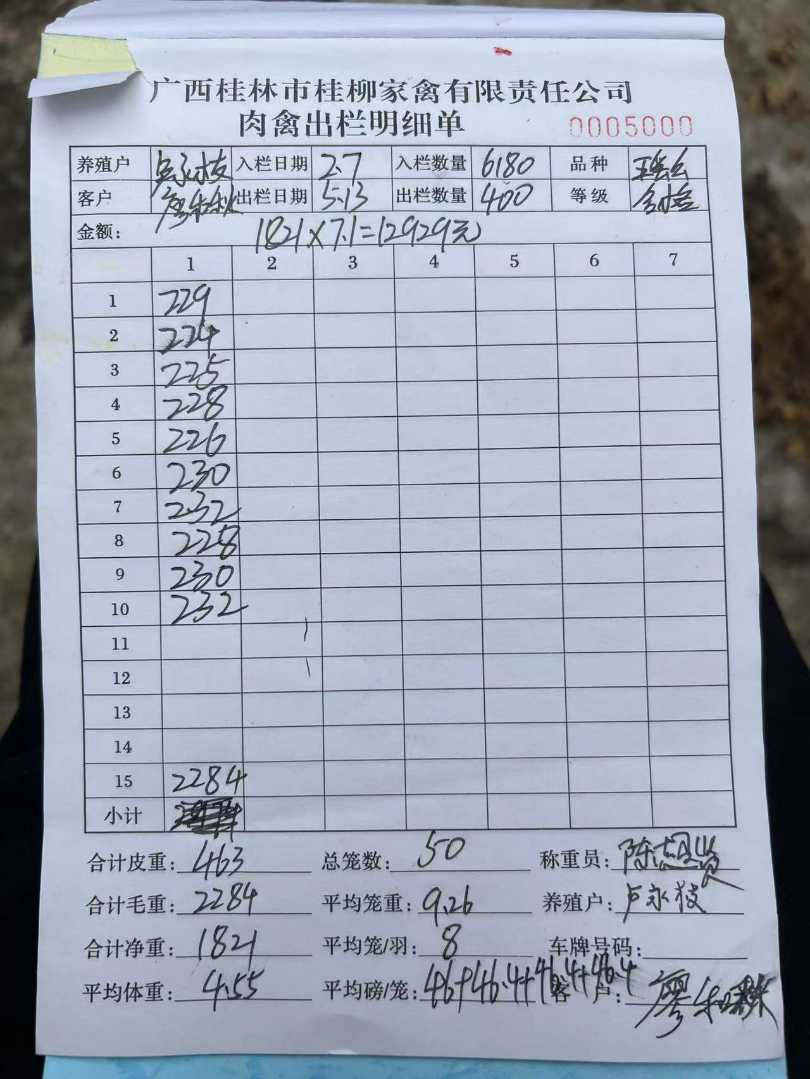 广西桂林市桂柳家禽有限责任公司
肉禽出栏明细单 0005000
养殖户 卢永枝 入栏日期 2.7 入栏数量 6180 品种
客户 出栏日期 5.13 出栏数量 400 等级
金额: 1821×7.1=12929元
1 2 3 4 5 6 7
1 229
2 224
3 225
4 228
5 226
6 230
7 232
8 228
9 230
10 232
11
12
13
14
15 2284
小计
合计皮重: 463 总笼数: 50 称重员: 陈
合计毛重: 2284 平均笼重: 9.26 养殖户: 卢永枝
合计净重: 1821 平均笼/羽: 8 车牌号码:
平均体重: 4.55 平均磅/笼: 46+46.4+46.4+46.4 客户: 廖